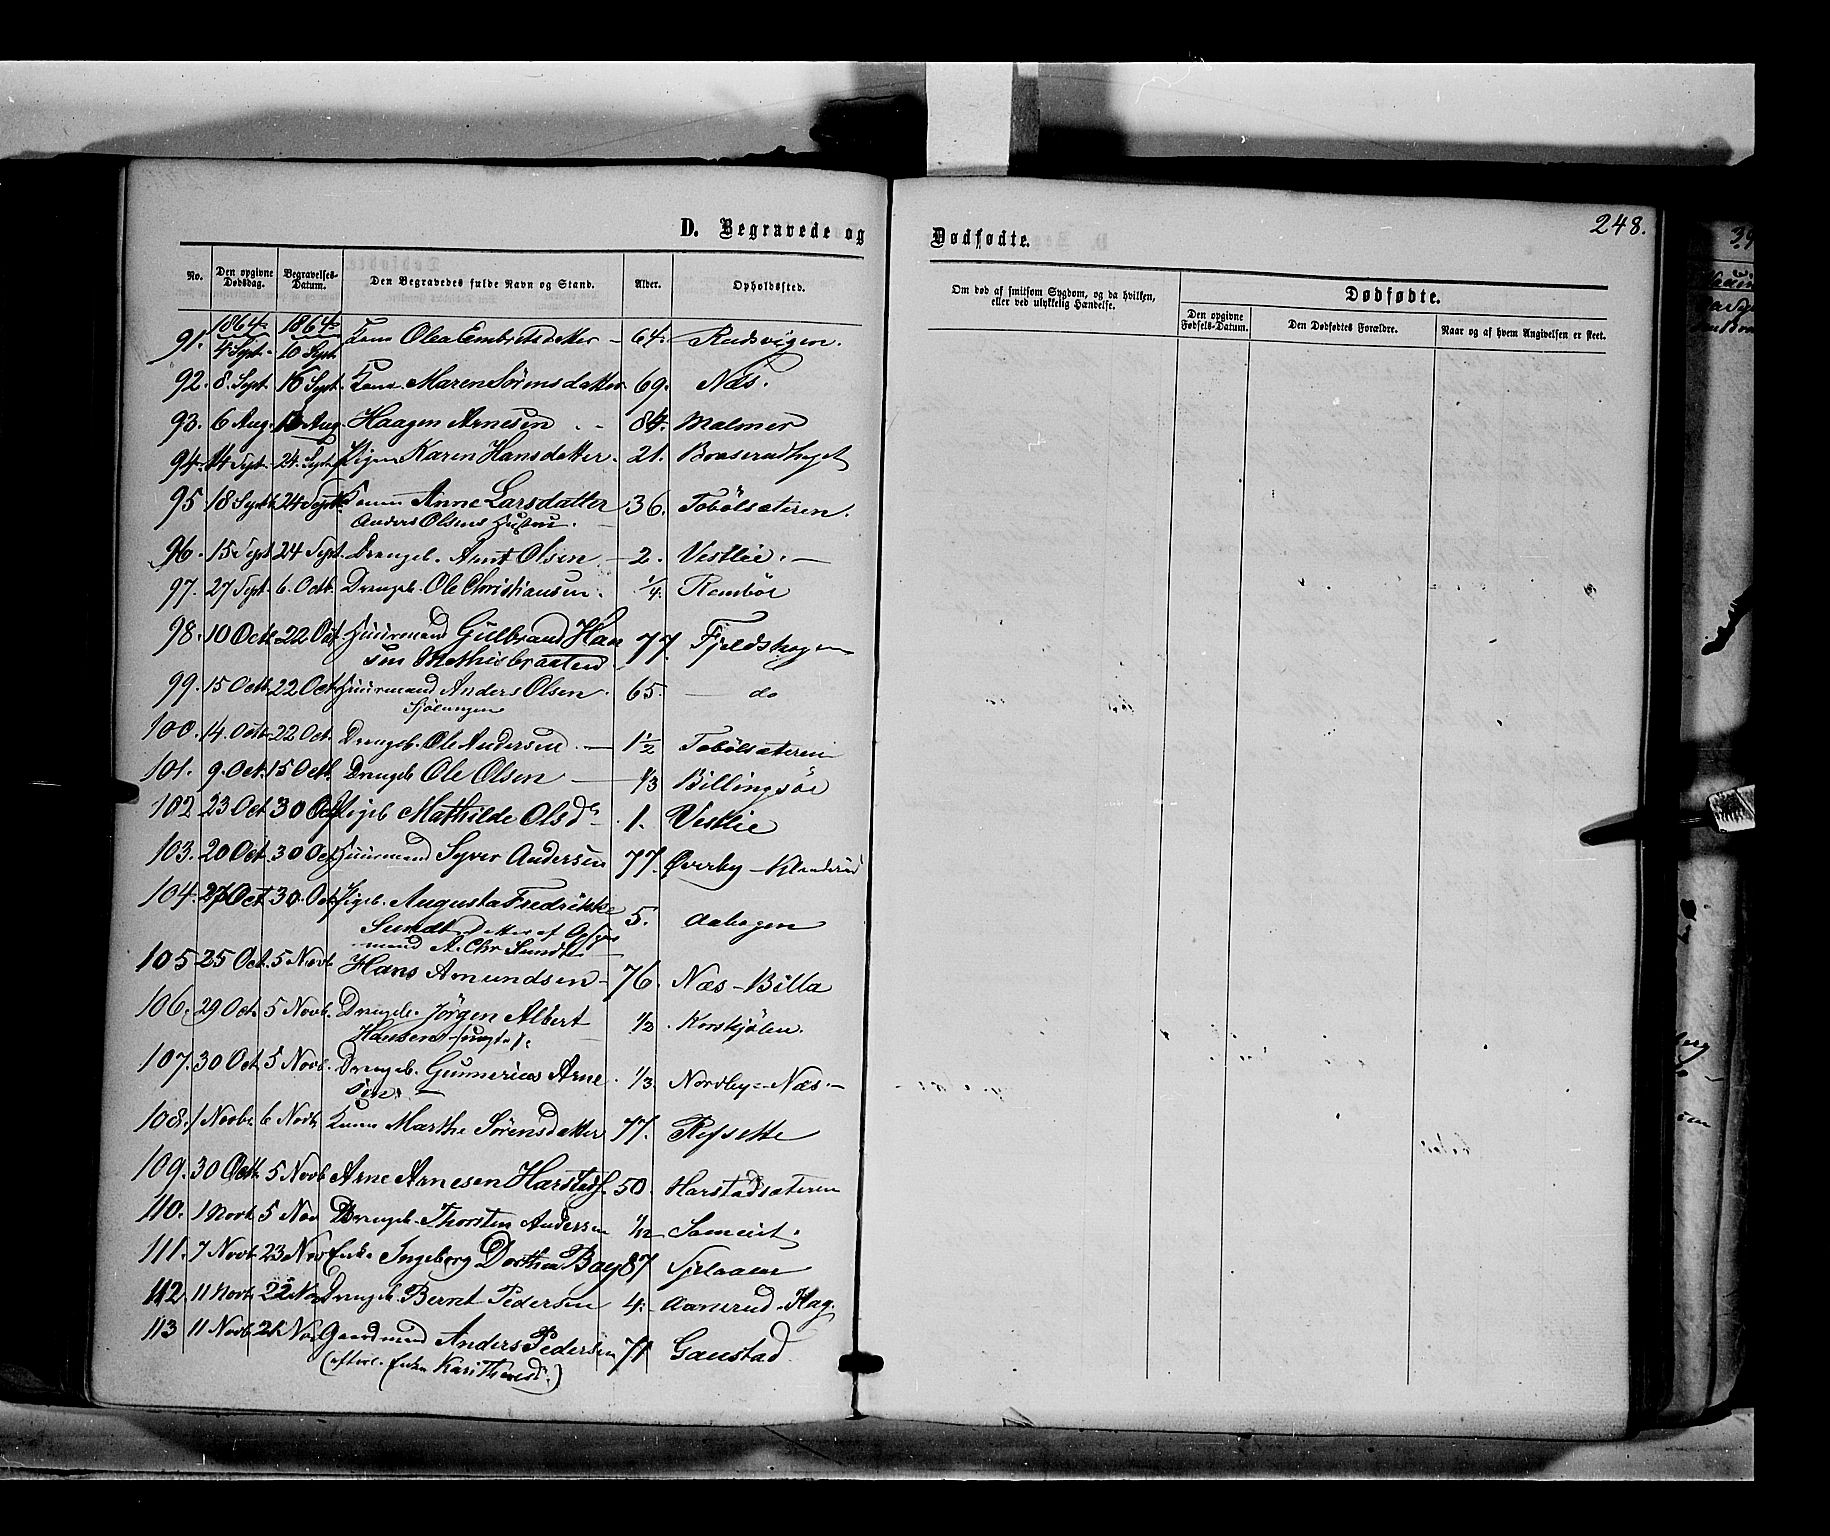 248.
D. Begravede og Dødfødte.
No. Den opgivne Dødsdag. Begravelses-Datum. Den Begravedes fulde Navn og Stand. Alder. Opholdssted.
Om død af smitsom Sygdom, og da hvilken, eller ved ulykkelig Hændelse.
Dødfødte.
Den opgivne Fødsels-Datum. Den Dødfødtes Forældre. Naar og af hvem Angivelsen er skeet.
1864 1864
91. 4 Sept. 10 Sept. Kone Olea Embretsdatter 64.
92. 8. Sept. 16 Sept. Kone Maren Sørensdatter 69. Næs.
93. 6 Aug. Aug. Haagen Arnesen 84. Malmer
94. 14 Sept. 24. Sept. Pigen Karen Hansdatter. 21.
95 18 Sept. 24 Sept. Konen Anne Larsdatter 36. Tobølsæteren.
Anders Olsens Hustru.
96. 15 Sept 24 Sept. Drengeb. Arnt Olsen 2. Vestlie.
97. 27 Sept. 6. Octb. Drengeb. Ole Christiansen. 1/4.
98. 10 Octb. 22 Oct. Huusmand Gulbrand Han
sen 77. Fjeldskogen
99. 15 Octb. 22 Oct. Huusmand Anders Olsen. 65. do
100. 14. Octb. 22 Oct. Drengeb. Ole Andersen. 1 1/2 Tobølsæteren
101. 9. Oct. 15 Octb. Drengeb. Ole Olsen 1/3 Billingsøe
102. 23 Oct. 30 Oct. Pigeb. Mathilde Olsd. 1. Vestlie
103. 20 Oct. 30 Oct. Huusmand Syver Andersen 77. Øverby
104. Oct 30. Oct. Pigeb. Augusta Fredrikke 5. Aabogen
Sundt datter af
mand A. Chr Sundt
105 25 Oct. 5 Novb. Hans Amundsen 76. Næs-Billa
106. 29 Oct. 5 Novb. Drengeb. Jørgen Albert 1/2.
Hansen
107. 30 Oct. 5 Novb. Drengeb. Gunnerius Arne 1/3 Nordby-Næs.
sen.
108. 1 Novbr. 6 Novb. Kone Marthe Sørensdatter 77. Refsette
109. 30 Octb. 5 Novb. Arne Arnesen Harstads. 50. Harstadsæteren
110. 1 Novb. 5 Nov. Drengeb. Thorsten Andersen 1/12
111. 7 Novb. 23 Nov. Enke Ingeborg Dorthea Bay 87
112. 11 Novb. 22 Nov. Drengeb. Bernt Pedersen 4. Aamerud-Hag.
113 11 Novb. Nov. Gaardmand Anders Pedersen 71 Gaustad.
(efterl. Enke Kari)